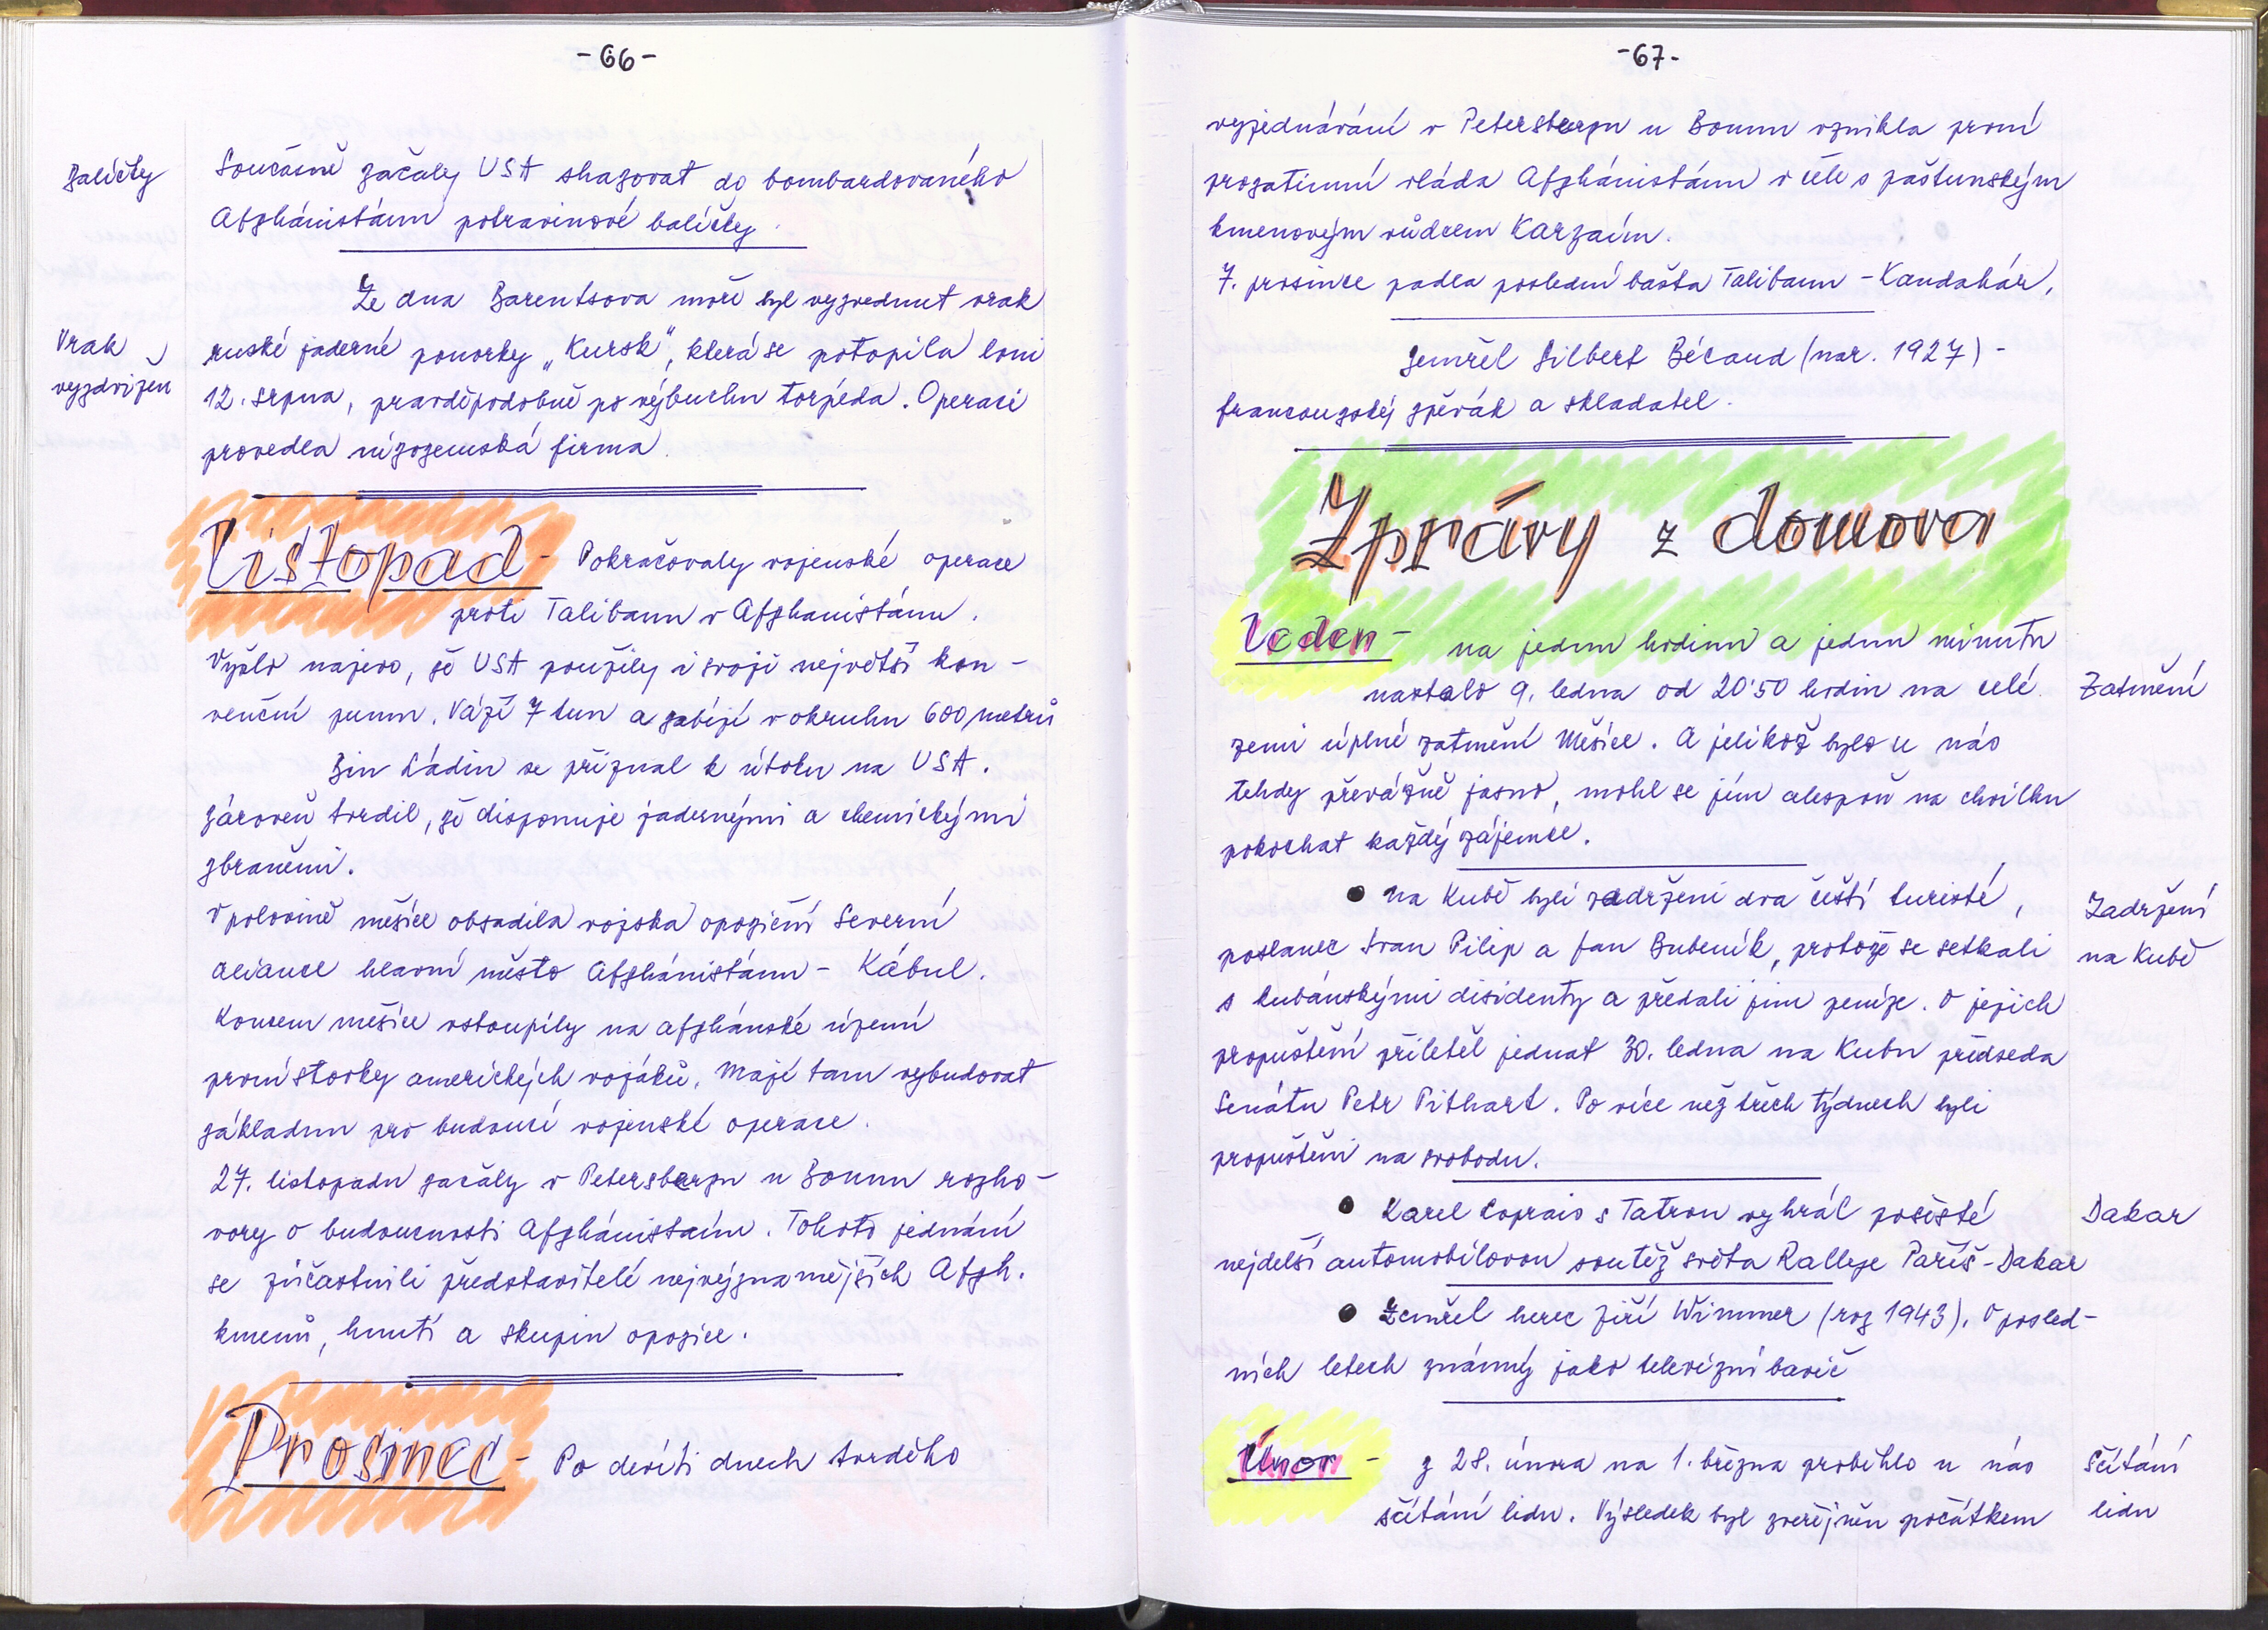 -66-
Balíčky
Současně začaly USA shazovat do bombardovaného
Afghánistánu potravinové balíčky.
Ze dna Barentsova moře byl vyzvednut vrak
Vrak
vyzdvižen
ruské jaderné ponorky „Kursk", která se potopila loni
12. srpna, pravděpodobně po výbuchu torpéda. Operaci
provedla nizozemská firma.
Listopad - Pokračovaly vojenské operace
proti Talibanu v Afghanistánu.
Vyšlo najevo, že USA použily i svoji největší kon-
venční pumu. Váží 7 tun a zabíjí v okruhu 600 metrů
Bin Ládin se přiznal k útoku na USA.
Zároveň tvrdil, že disponuje jadernými a chemickými
zbraněmi.
V polovině měsíce obsadila vojska opoziční Severní
aliance hlavní město Afghánistánu - Kábul.
Koncem měsíce vstoupily na afghánské území
první stovky amerických vojáků. Mají tam vybudovat
základnu pro budoucí vojenské operace.
27. listopadu začaly v Petersbergu u Bonnu rozho-
vory o budoucnosti Afghánistánu. Tohoto jednání
se zúčastnili představitelé nejvýznamějších Afgh.
kmenů, hnutí a skupin opozice.
Prosinec - Po devíti dnech tvrdého
-67-
vyjednávání v Petersbergu u Bonnu vznikla první
prozatimní vláda Afghánistánu v čele s paštunským
kmenovým vůdcem Karzaím.
7. prosince padla poslední bašta Talibanu - Kandahár.
Zemřel Gilbert Bécaud (nar. 1927) -
francouzský zpěvák a skladatel.
Zprávy z domova
Leden - na jednu hodinu a jednu minutu
nastalo 9. ledna od 20'50 hodin na celé
Zatmění
zemi úplné zatmění Měsíce. A jelikož bylo u nás
tehdy převážně jasno, mohl se jím alespoň na chvilku
pokochat každý zájemce.
• Na Kubě byli zadrženi dva čeští turisté,
Zadržení
na Kubě
poslanec Ivan Pilip a Jan Bubeník, protože se setkali
s kubánskými disidenty a předali jim peníze. O jejich
propuštění přiletěl jednat 30. ledna na Kubu předseda
Senátu Petr Pithart. Po více než třech týdnech byli
propuštěni na svobodu.
• Karel Loprais s Tatrou vyhrál pošesté
Dakar
nejdelší automobilovou soutěž světa Rallye Paříš-Dakar
• Zemřel herec Jiří Wimmer (roz 1943). V posled-
ních letech známý jako televizní bavič
Únor - z 28. února na 1. března proběhlo u nás
Sčítání
lidu
sčítání lidu. Výsledek byl zveřejněn počátkem